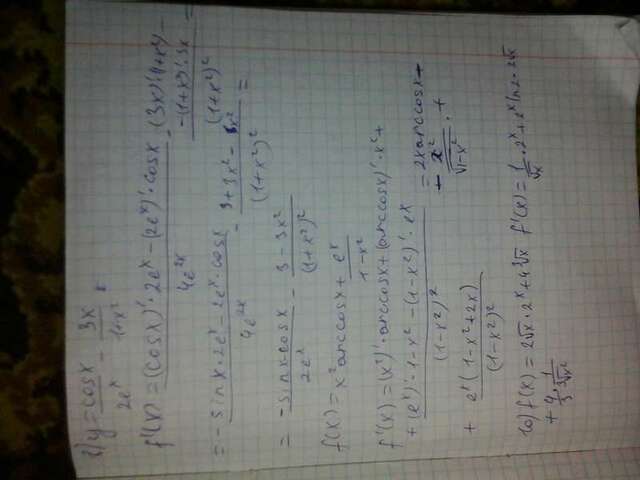 2) y = cosx / 2eˣ − 3x / 1+x²
f'(x) = (cosx)'·2eˣ − (2eˣ)'·cosx / 4e²ˣ − (3x)'(1+x²) − −(1+x²)'·3x / (1+x²)² =
= −sinx·2eˣ − 2eˣ·cosx / 4e²ˣ − 3+3x² − 3x² / (1+x²)² =
= −sinx-cosx / 2eˣ − 3−3x² / (1+x²)²
f(x) = x² arccosx + eˣ / 1−x²
f'(x) = (x²)'·arccosx + (arccosx)'·x² +
+ (eˣ)'·1−x² − (1−x²)'·eˣ / (1−x²)² = 2x arccosx − x² / √1−x² · +
+ eˣ(1−x²+2x) / (1−x²)²
10) f(x) = 2√x·2ˣ + 4∛x f'(x) = 1/√x · 2ˣ + 2ˣ ln2·2√x
+ 4· 1 / 3∛x²